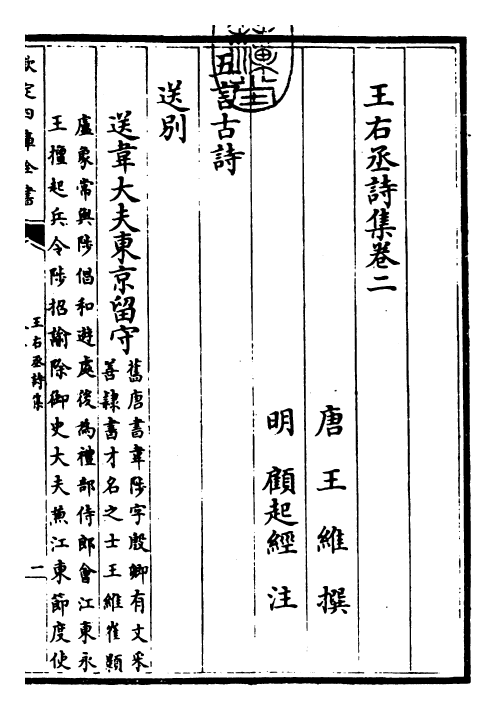 王右丞詩集卷二
唐 王維 撰
明 顧起經 注
五言古詩
送别
送韋大夫東京留守
舊唐書韋陟字殷卿有文采
善隸書才名之士王維崔顥
盧象常與陟倡和遊處後為禮部侍郎會江東永
王擅起兵令陟招諭除御史大夫蕪江東節度使
欽定四庫全書
王右丞詩集
二